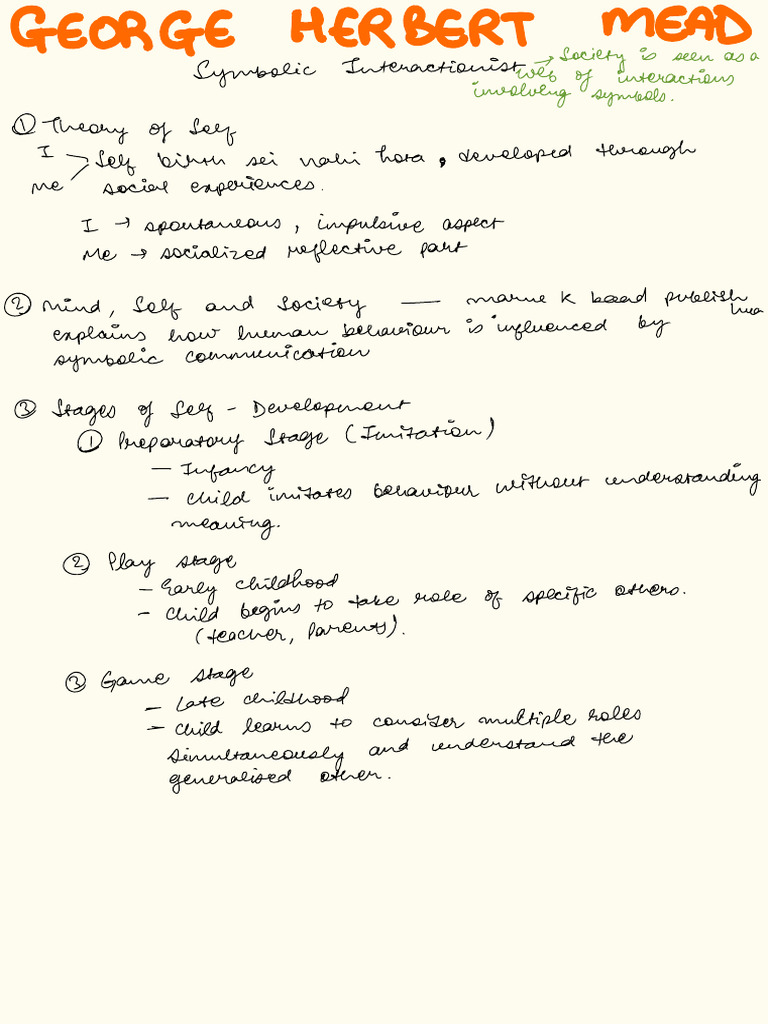 GEORGE HERBERT MEAD
Symbolic Interactionist → Society is seen as a
web of interactions
involving symbols.
① Theory of Self
I
Me
Self birth sei nahi hota, developed through
social experiences.
I → spontaneous, impulsive aspect
Me → socialized reflective part
② Mind, Self and Society — marne k baad publish
hua
explains how human behaviour is influenced by
symbolic communication
③ Stages of Self - Development
① Preparatory Stage (Imitation)
— Infancy
— Child imitates behaviour without understanding
meaning.
② Play stage
- Early childhood
- Child begins to take role of specific others.
(teacher, Parents).
③ Game stage
- Late childhood
- Child learns to consider multiple roles
simultaneously and understand the
generalised other.